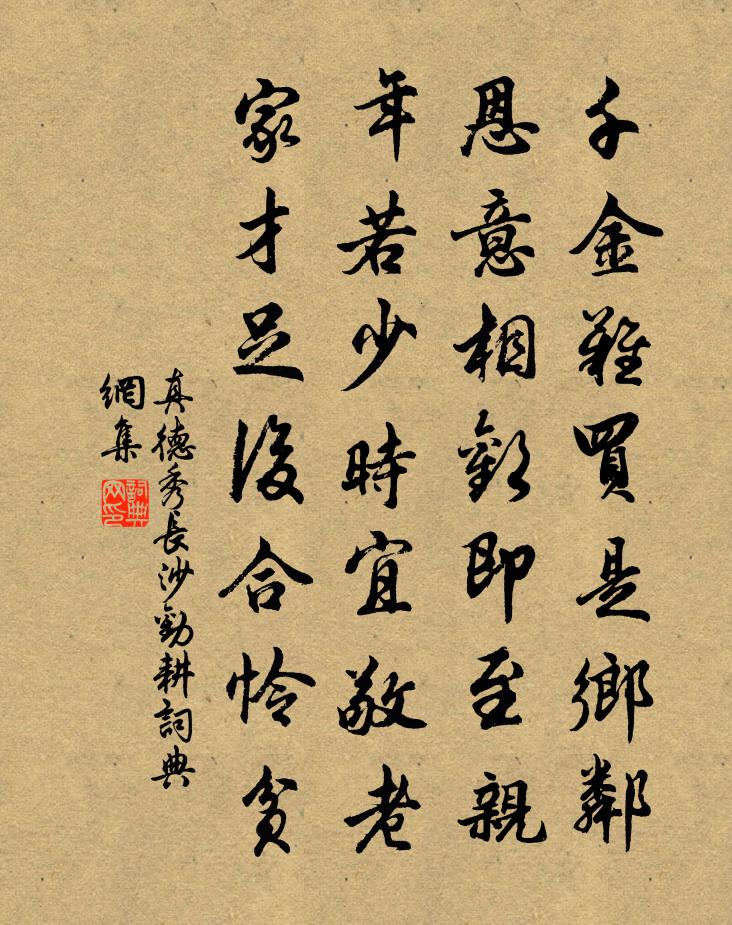 千金難買是鄉鄰
恩意相歡即至親
年若少時宜敬老
家才足後合怜貧
真德秀長沙勸耕詞典
網集
詞典
网印